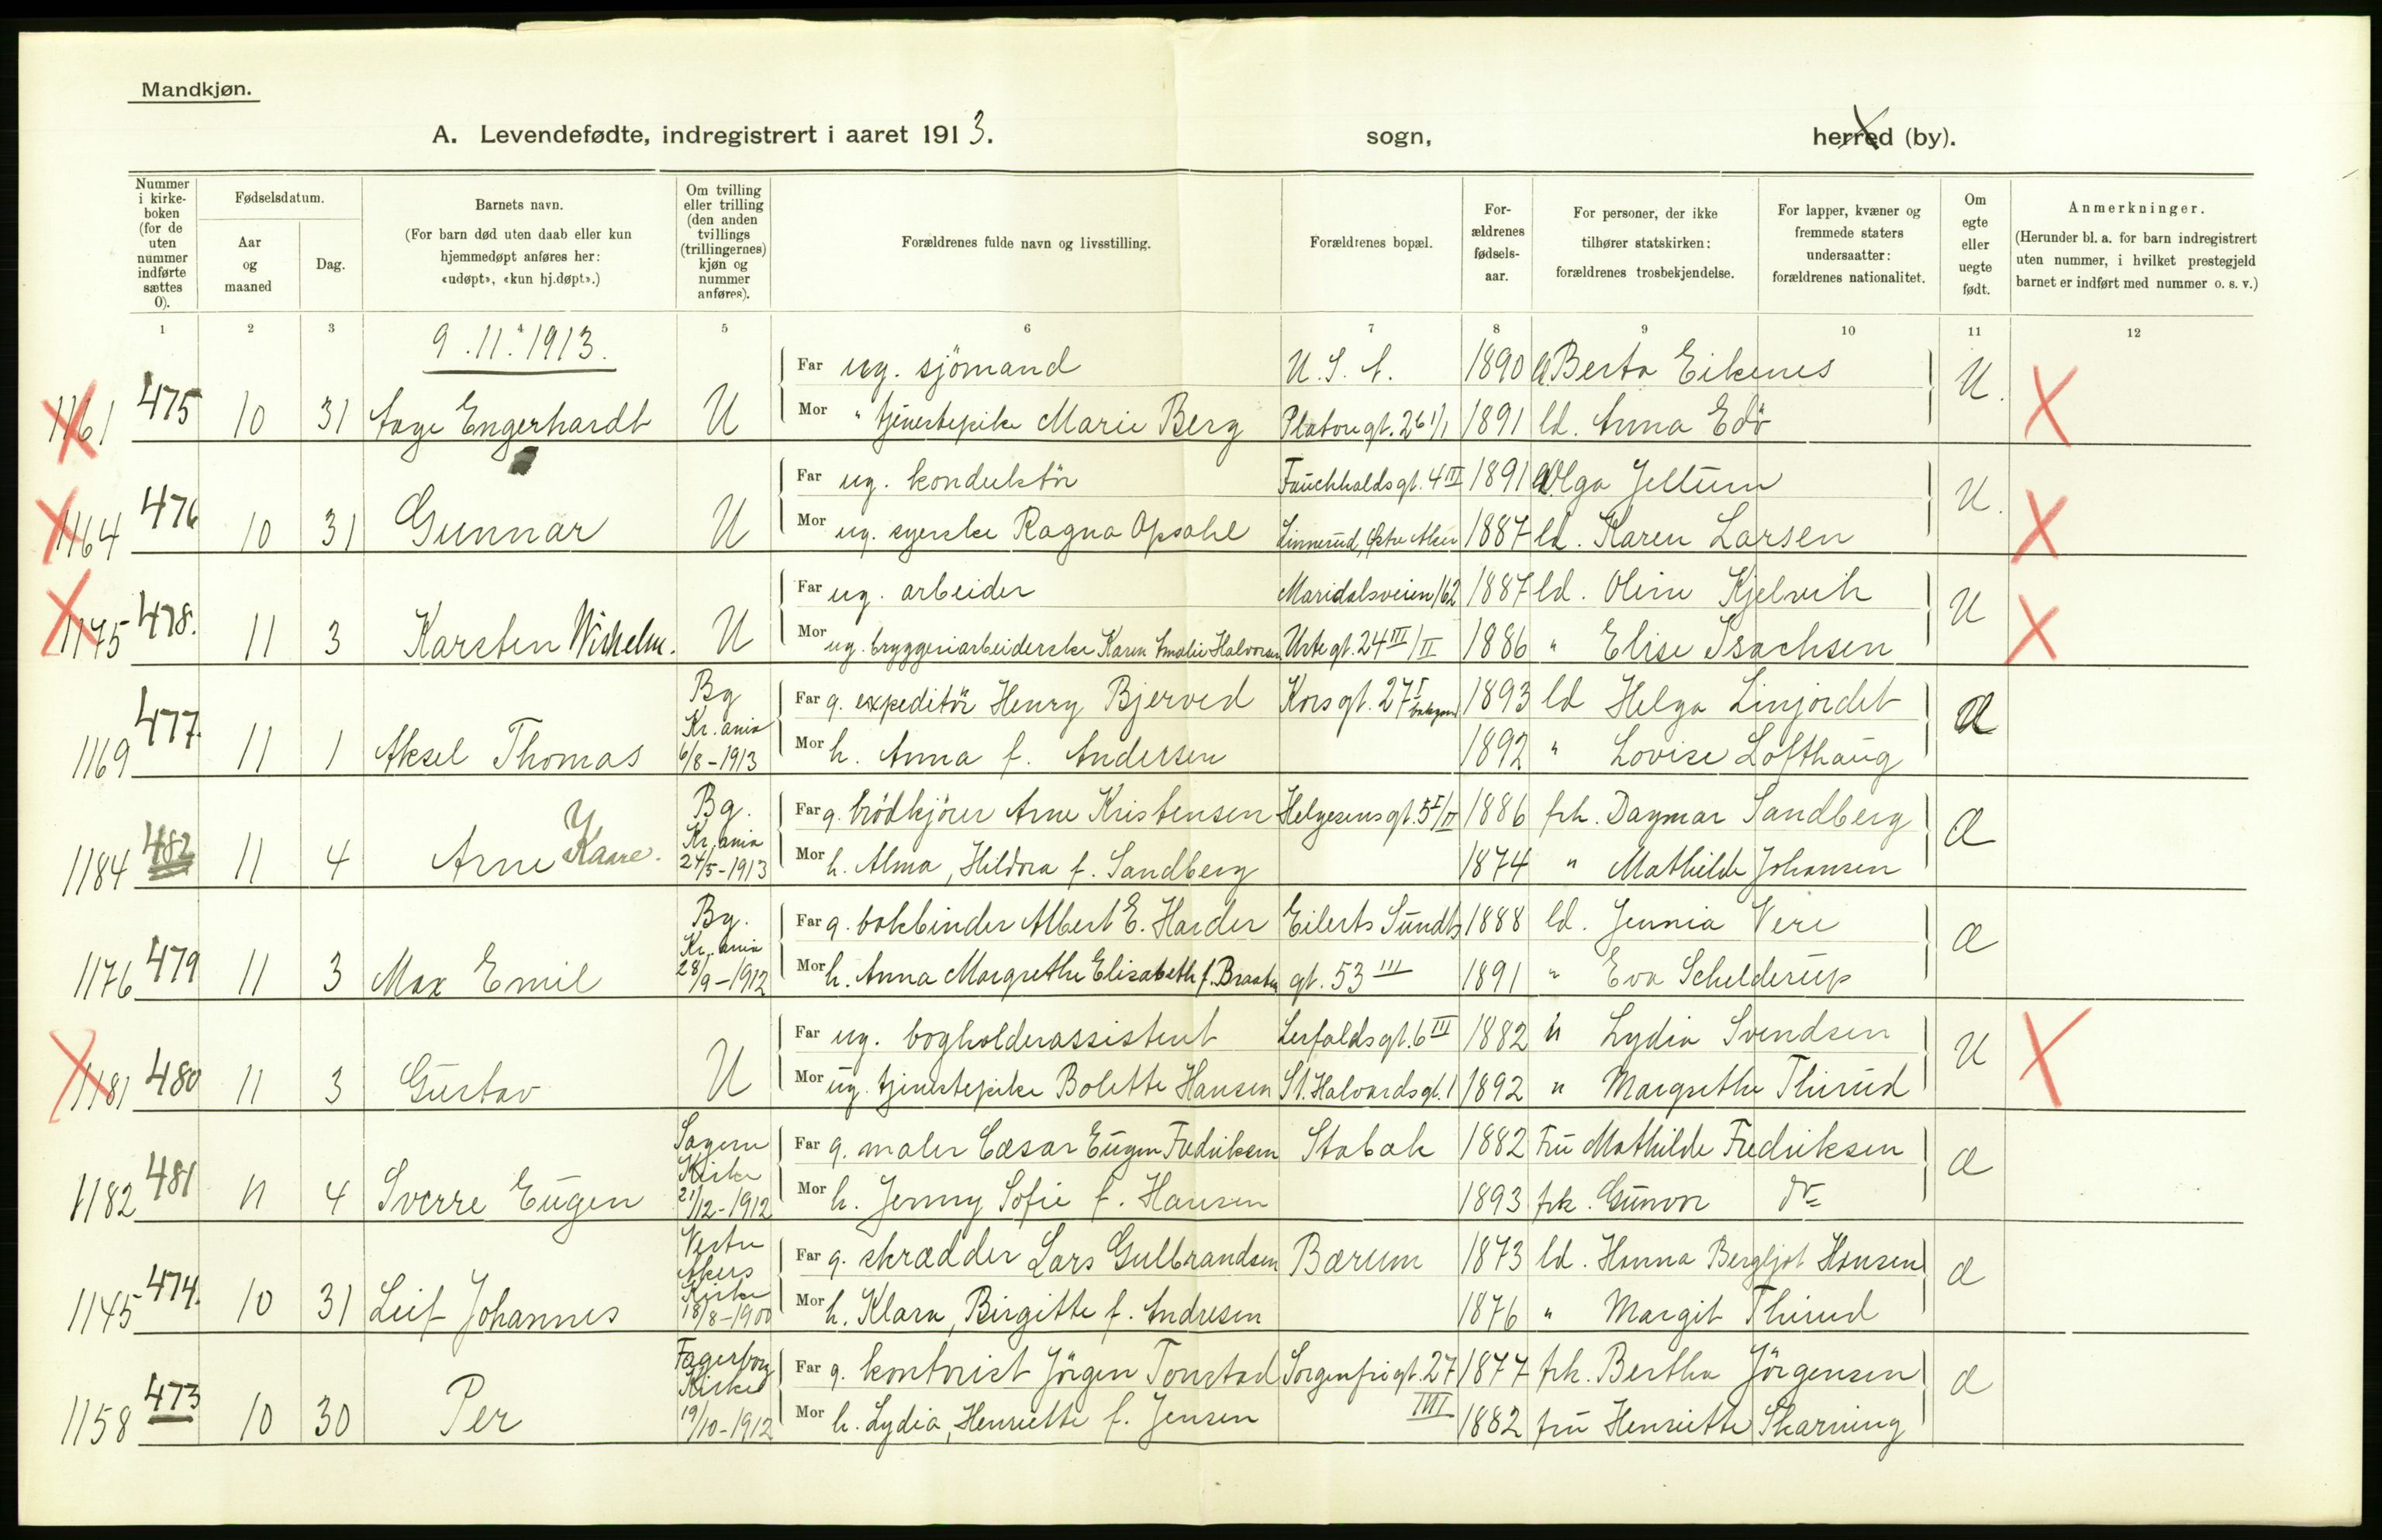 Mandkjøn.
A. Levendefødte, indregistrert i aaret 1913. sogn, herred (by).
Nummer i kirkeboken (for de uten nummer indførte sættes 0).
Fødselsdatum.
Aar og maaned
Dag.
Barnets navn.
(For barn død uten daab eller kun hjemmedøpt anføres her: «udøpt», «kun hj.døpt».)
Om tvilling eller trilling (den anden tvillings (trillingernes) kjøn og nummer anføres).
Forældrenes fulde navn og livsstilling.
Forældrenes bopæl.
Forældrenes fødselsaar.
For personer, der ikke tilhører statskirken: forældrenes trosbekjendelse.
For lapper, kvæner og fremmede staters undersaatter: forældrenes nationalitet.
Om egte eller uegte født.
Anmerkninger.
(Herunder bl. a. for barn indregistrert uten nummer, i hvilket prestegjeld barnet er indført med nummer o. s. v.)
1 2 3 4 5 6 7 8 9 10 11 12
9.11.1913.
Far ug. sjömand U.S.A. 1890 Berta Eikenes U.
1161 475 10 31 Aage Engerhardt U Mor " tjenestepike Marie Berg Platousgt. 26 1/1 1891 ld. Anna Edö
Far ug. konduktör Fauchhaldsgt. 4 III 1891 Olga Jellum U.
1164 476 10 31 Gunnar U Mor ug. syerske Ragna Opsahl Linnerud, Østre Aker 1887 ld. Karen Larsen
Far ug. arbeider Maridalsveien 162 1887 ld. Oline Kjelvik U
1175 478. 11 3 Karsten Wilhelm. U Mor ug. bryggeriarbeiderske Karen Amalie Halvorsen Urtegt. 24 III/II 1886 " Elise Isachsen
Bg Kr.ania 6/8-1913 Far g. expeditör Henry Bjerved Korsgt. 27 I 1893 ld Helga Linjordet
1169 477. 11 1 Aksel Thomas Mor h. Anna f. Andersen 1892 " Lovise Lofthaug
Bg. Kr.ania 24/5-1913 Far g. brödkjörer Arne Kristensen Helgesensgt. 5 I/II 1886 frk. Dagmar Sandberg
1184 482 11 4 Arne Kaare. Mor h. Alma, Hildora f. Sandberg 1874 " Mathilde Johansen
Bg. Kr.ania 28/9-1912 Far g. bokbinder Albert E. Harder Eilerts Sundts 1888 ld. Jennia Vere
1176 479 11 3 Max Emil Mor h. Anna Margrethe Elisabeth f. Braaten gt. 53 III 1891 " Eva Schelderup
Far ug. bogholderassistent Lerfaldsgt. 6 III 1882 " Lydia Svendsen U
1181 480 11 3 Gustav U Mor ug. tjenestepike Bolette Hansen St. Halvardsgt. 1 1892 " Margrethe Thirud
Sagene Kirke 21/12-1912 Far g. maler Cæsar Eugen Fredriksen Stabak 1882 Fru Mathilde Fredriksen
1182 481 11 4 Sverre Eugen Mor h. Jenny Sofie f. Hansen 1893 frk. Gunvor do
Vestre Akers Kirke 18/8-1900 Far g. skrædder Lars Gulbrandsen Bærum 1873 ld. Hanna Bergljot Hansen
1145 474. 10 31 Leif Johannes Mor h. Klara, Birgitte f. Andresen 1876 " Margit Thirud
Fagerborg Kirke 19/10-1912 Far g. kontorist Jörgen Tonstad Sorgenfrigt. 27 1877 frk. Bertha Jörgensen
1158 473 10 30 Per Mor h. Lydia, Henriette f. Jensen III 1882 fru Henriette Skarning